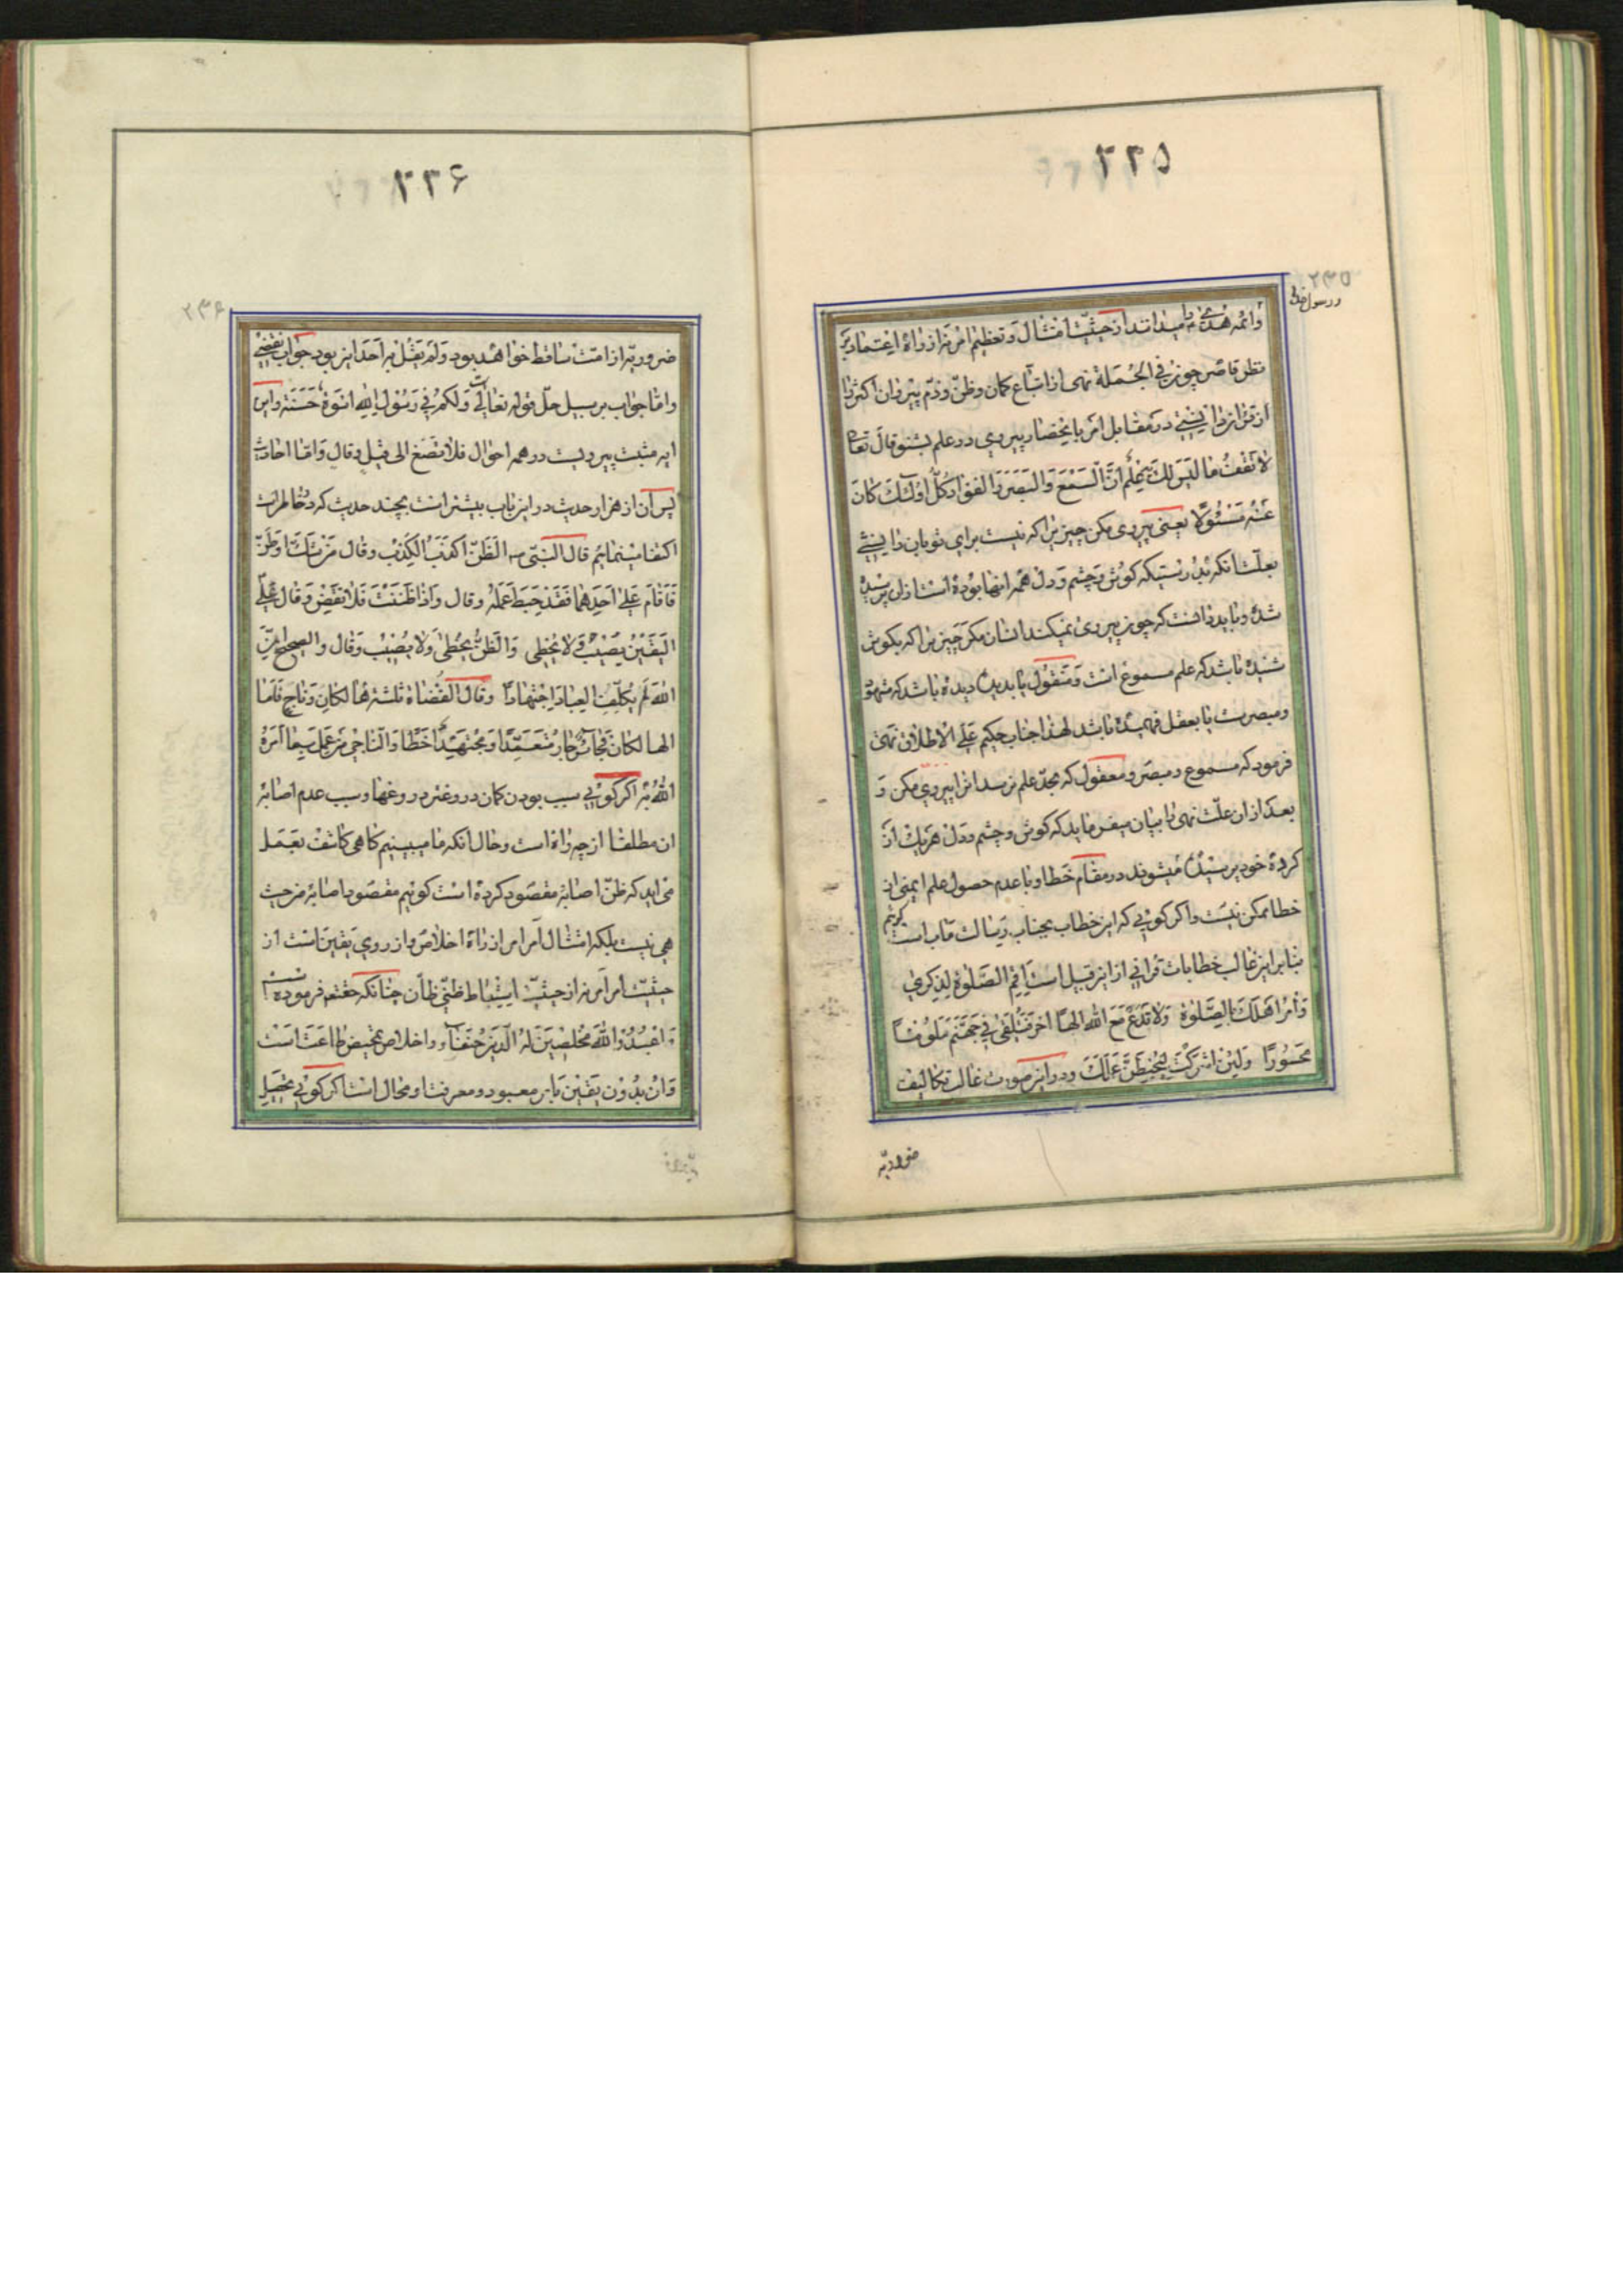 ۲۳۵
۲۳۵
و رسول خدا
وائمه هدی میدانند از حیثیت امتثال و تعظیم امر نه از راه اعتماد بر
نظر قاصر چون فی الجمله نهی از اتباع کمان وظن و ذم پیروان اکثر را
از قران دانستی در مقابل امر بانحصار پیروی در علم بشنو قال تعالی
لا تقف ما لیس لک به علم ان السمع والبصر والفؤاد کل اولئک کان
عنه مسئولا یعنی پیروی مکن چیزیرا که نیست برای تو بان دانشی
بعلت انکه بدرستیکه کوش و چشم و دل همه انها بوده است از ان پرسیده
شده و باید دانست که چون پیروی نمیکند انسان مکر چیزیرا که بکوش
شنیده باشد که علم مسموع است و منقول یا بدیدن دیده باشد که مشهود
ومبصرست یا بعقل فهمیده باشد لهذا جناب حکیم علی الاطلاق نهی
فرمود که مسموع و مبصر و معقول که بحد علم نرسد انرا پیروی مکن و
بعد از ان علت نهی را بیان میفرماید که کوش و چشم و دل هریک از
کرده خود پرسیده میشوند در مقام خطا و با عدم حصول علم ایمنی از
خطا ممکن نیست و اکر کوئی که این خطاب بجناب رسالت ماب است کوئیم
بنا براین غالب خطابات قرانی از این قبیل است اقم الصلوة لذکری
وأمر اهلک بالصلوة ولا تدع مع الله الها اخر فتلقی فی جهنم ملوما
محسورا ولئن اشرکت لیحبطن عملک و در این صورت غالب تکالیف
ضروریه
۲۳۶
۲۳۶
ضروریه از امت ساقط خواهد بود ولم یقل به احد این بود جواب نقضی
واما جواب بر سبیل حل قوله تعالی ولکم فی رسول الله اسوة حسنة واین
ایه مثبت پیرویست در همه احوال فلا تصغ الی قیل وقال واما احادیث
پس ان از هزار حدیث در این باب بیشتر است بچند حدیث که در خاطر است
اکتفا مینمایم قال النبی ص الظن اکذب الکذب وقال من شک او ظن
فاقام علی احدهما فقد حبط عمله وقال واذا ظننت فلا تقض وقال علی
الیقین یصیب ولا یخطی والظن یخطی ولا یصیب وقال والصحیح من
الله لم یکلف العباد اجتهادا وقال القضاة ثلثة هالکان وناج فاما
الهالکان فجائر جار متعمدا ومجتهد اخطا والناجی من عمل بما امره
الله به اکر کوئی سبب بودن کمان دروغتر دروغها وسبب عدم اصابه
ان مطلقا از چه راه است وحال انکه ما میبینیم کاهی کاشف بعمل
می اید که ظن اصابه مقصود کرده است کوئیم مقصود اصابه من حیث
هی نیست بلکه امتثال امر امر از راه اخلاص و از روی یقین است از
حیثیت امر امر نه از حیثیت استنباط ظنی ظان چنانکه حقتعالی فرموده است
واعبدوا الله مخلصین له الدین حنفاء و اخلاص تمحیض طاعت است
وان بدون یقین بامر معبود و معرفت او محال است اکر کوئی تحصیل